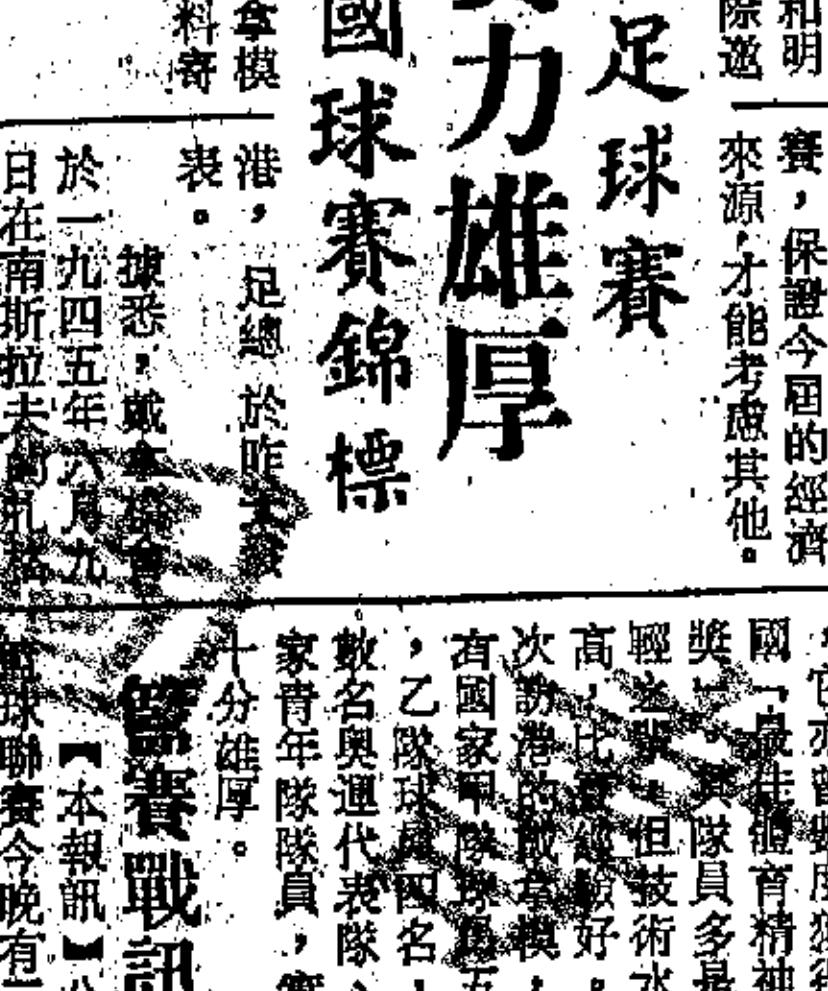 和明
際邀
賽，保證今屆的經濟
來源，才能考慮其他。
足球賽
力雄厚
國球賽錦標
拿模
料寄
港，足總於昨天發
表。
據悉，戴拿模會
於一九四五年八月九
日在南斯拉夫的札格
它亦曾
國「最佳體育精神
獎」。其隊員多是
輕之輩，但技術水
高，比賽經驗好。
次訪港的戴拿模，
有國家甲隊球員五
，乙隊球員四名，
數名奧運代表隊、
家青年隊隊員，實
十分雄厚。
籃賽戰訊
【本報訊】
籃球聯賽今晚有